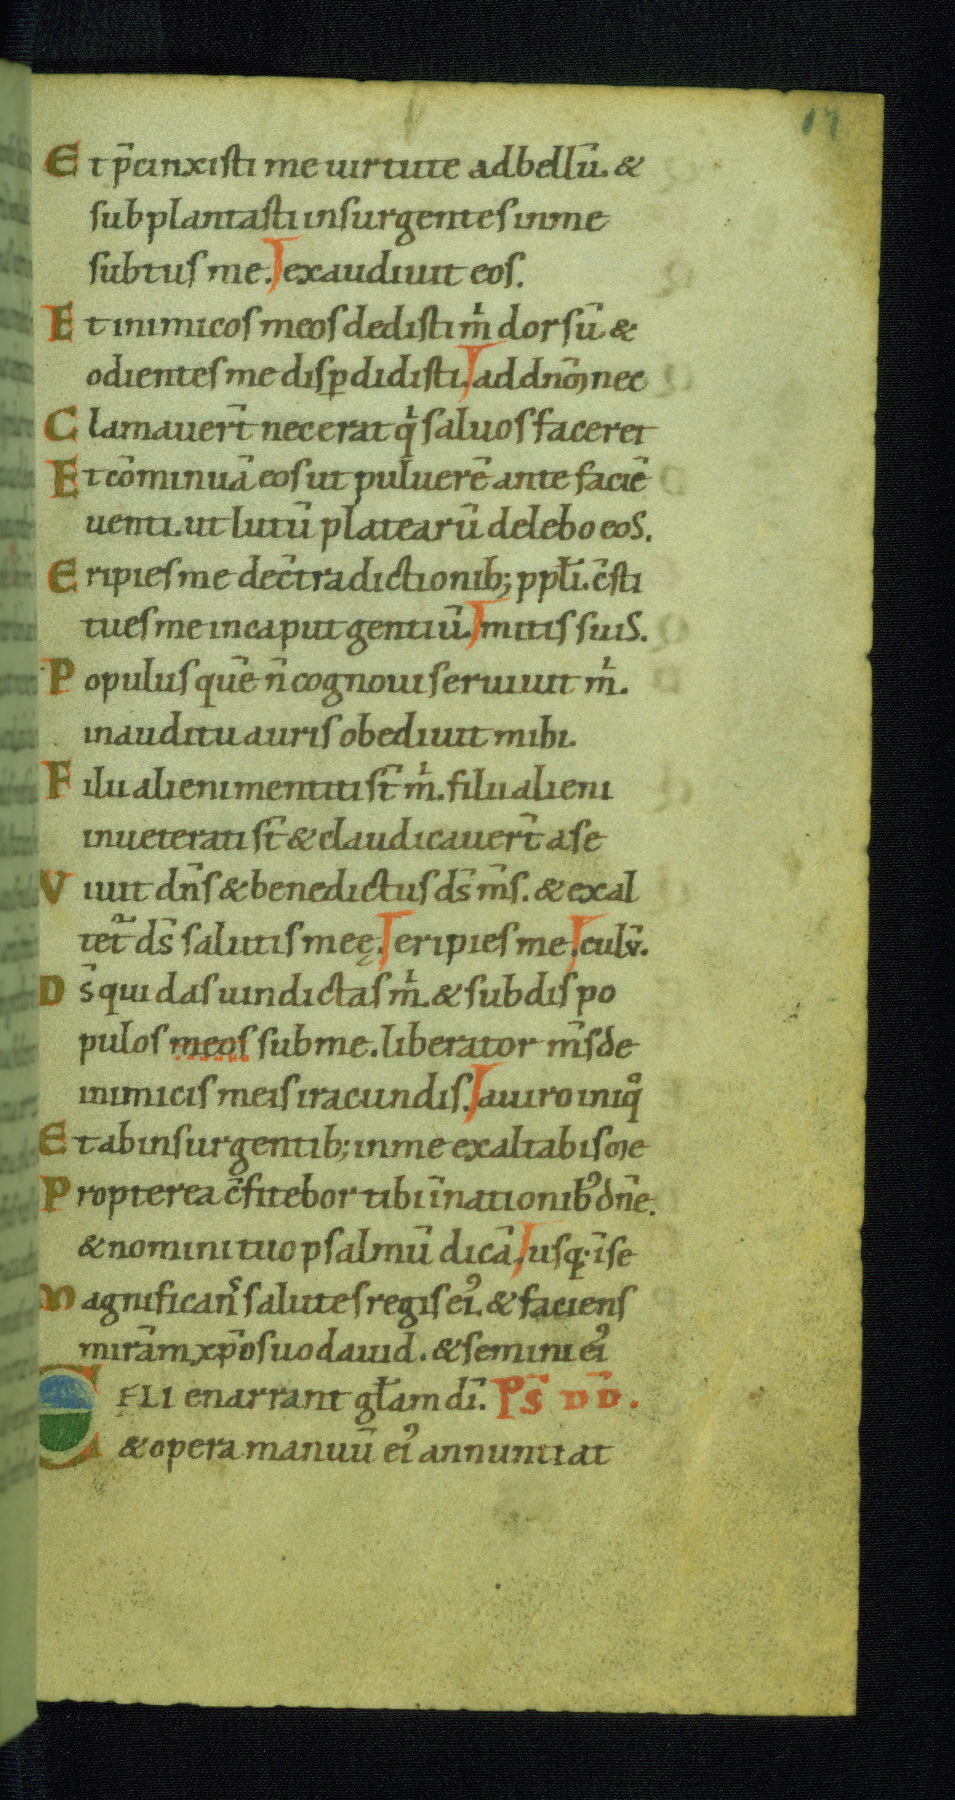 17
Et p̄cinxisti me uirtute adbellū. &
subplantasti insurgentes inme
subtus me. exaudiuit eos.
Et inimicos meos dedisti m̍ dorsū &
odientes me disꝑdidisti. ad dn̄m nec
Clamauer̄t nec erat q̍ saluos faceret
Et cōminuā eos ut puluerē ante faciē
uenti. ut lutū platearū delebo eos.
Eripies me dec̄tradictionib; ppl̄i. c̄sti
tues me incaput gentiū. mitis suis.
Populus quē n̄ cognoui seruiuit m̍.
inauditu auris obediuit mihi.
Filii alieni mentiti st̄ m̍. filii alieni
inueterati st̄ & claudicauer̄t a se
Viuit dn̄s & benedictus ds̄ m̄s. & exal
tet᷒ ds̄ salutis meę. eripies me. culṽ.
Ds̄ qui das uindictas m̍ & subdis po
pulos meos sub me. liberator m̄s de
inimicis meis iracundis. auiro iniqͦ
Et abinsurgentib; inme exaltabis me
Propterea c̄fitebor tibi īnationibꝰ dn̄e.
& nomini tuo psalmū dicā. usq; īse
Magnifican̄s salutes regis eiꝰ. & faciens
mir̄am xp̄o suo dauid. & semini eiꝰ
CELI enarrant gl̄am dī. Ps̄ DD̄.
& opera manuū eiꝰ annuntiat